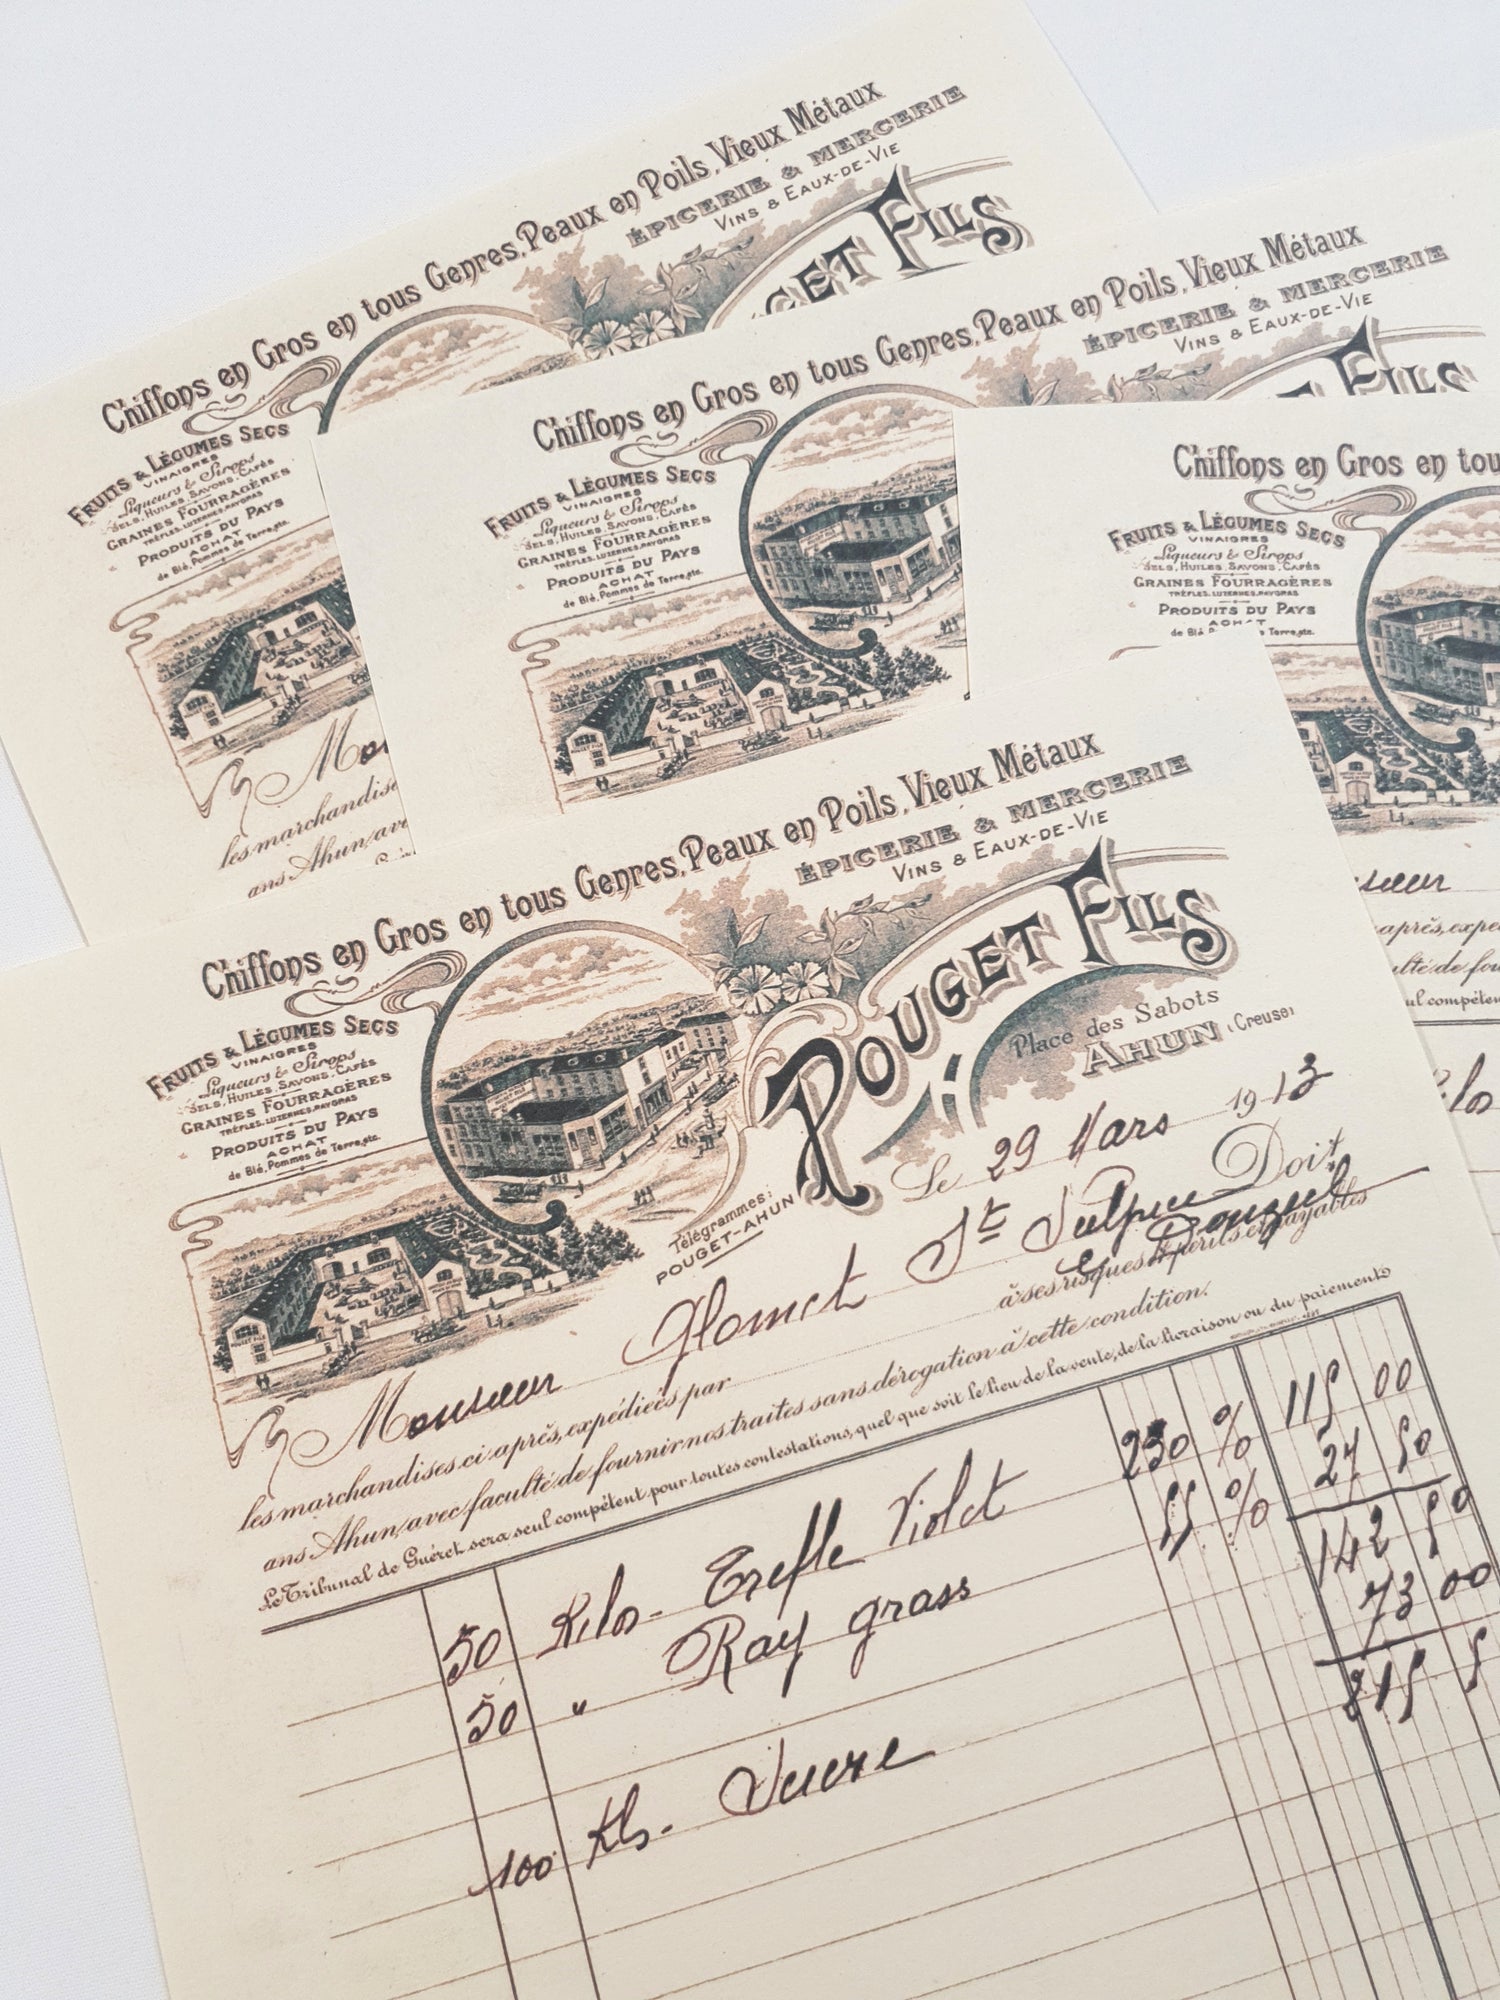 Chiffons en Gros en tous Genres, Peaux en Poils, Vieux Métaux
ÉPICERIE & MERCERIE
VINS & EAUX-DE-VIE
GET FILS
FRUITS & LÉGUMES SECS
VINAIGRES
Liqueurs & Sirops
SELS, HUILES, SAVONS, CAFÉS
GRAINES FOURRAGÈRES
TRÈFLES, LUZERNES, RAYGRAS
PRODUITS DU PAYS
ACHAT
de Blé, Pommes de Terre, etc.
les marchandise
ans Ahun, ave
Chiffons en Gros en tous Genres, Peaux en Poils, Vieux Métaux
ÉPICERIE & MERCERIE
VINS & EAUX-DE-VIE
FILS
FRUITS & LÉGUMES SECS
VINAIGRES
Liqueurs & Sirops
SELS, HUILES, SAVONS, CAFÉS
GRAINES FOURRAGÈRES
TRÈFLES, LUZERNES, RAYGRAS
PRODUITS DU PAYS
ACHAT
de Blé, Pommes de Terre, etc.
Chiffons en Gros en tou
FRUITS & LÉGUMES SECS
VINAIGRES
Liqueurs & Sirops
SELS, HUILES, SAVONS, CAFÉS
GRAINES FOURRAGÈRES
TRÈFLES, LUZERNES, RAYGRAS
PRODUITS DU PAYS
ACHAT
de Blé Terre, etc.
sieur
après, expé
ulté de fou
ul compéten
Kilos
Chiffons en Gros en tous Genres, Peaux en Poils, Vieux Métaux
ÉPICERIE & MERCERIE
VINS & EAUX-DE-VIE
POUGET FILS
Place des Sabots
AHUN (Creuse)
FRUITS & LÉGUMES SECS
VINAIGRES
Liqueurs & Sirops
SELS, HUILES, SAVONS, CAFÉS
GRAINES FOURRAGÈRES
TRÈFLES, LUZERNES, RAYGRAS
PRODUITS DU PAYS
ACHAT
de Blé, Pommes de Terre, etc.
Télégrammes:
POUGET-AHUN
Le 29 Mars 1913
Monsieur Glomet St Sulpice Doit
les marchandises ci après, expédiées par à ses risques et périls et payables
ans Ahun, avec faculté de fournir nos traites sans dérogation à cette condition.
Le Tribunal de Guéret sera seul compétent pour toutes contestations, quel que soit le lieu de la vente, de la livraison ou du paiement
50 Kilos - Trefle Violet 230 % 115 00
50 " Ray grass 55 % 27 50
142 50
100 Kls - Sucre 73 00
215 5